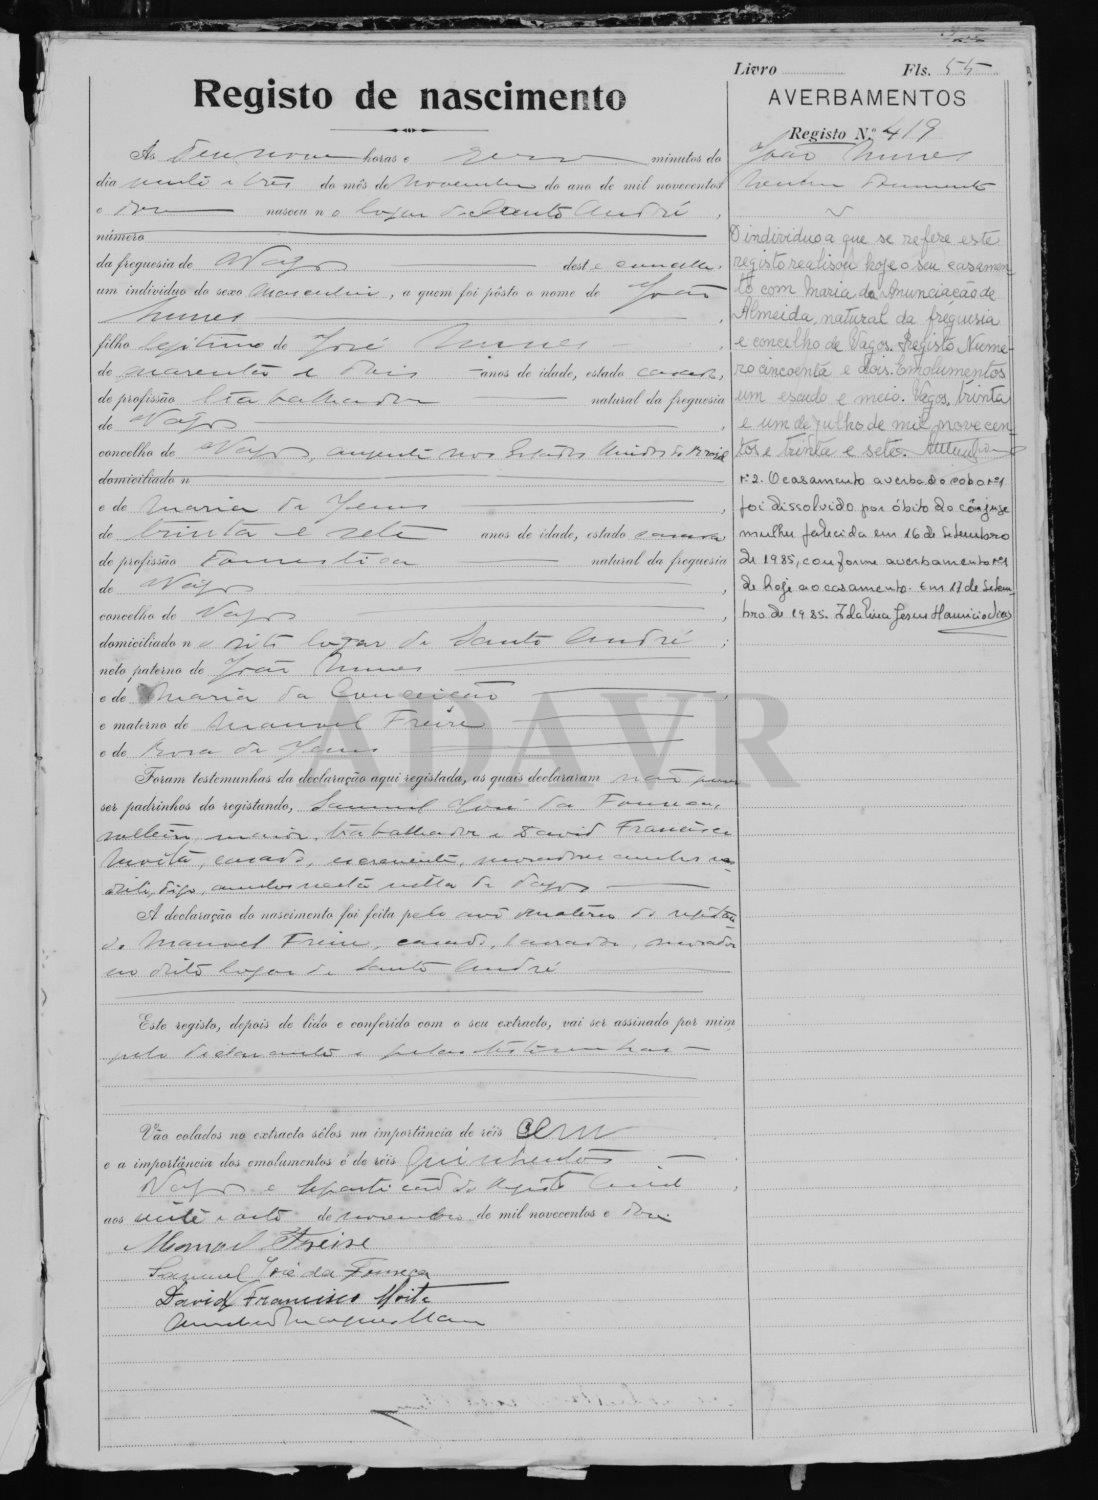 Livro Fls. 55
Registo de nascimento
AVERBAMENTOS
Registo N.º 419
João Nunes
O individuo a que se refere este
registo realisou hoje o seu casamen
to com Maria da Anunciação de
Almeida, natural da freguesia
e concelho de Vagos. Registo Nume-
ro cincoenta e dois. Emolumentos
um escudo e meio. Vagos, trinta
e um de julho de mil novecen-
tos e trinta e sete.
nº 2. O casamento averbado sob o nº 1
foi dissolvido por óbito do cônjuge
mulher falecida em 16 de Setembro
de 1985, conforme averbamento nº 1
de hoje ao casamento. Em 17 de Setem-
bro de 1985. Idalina Jesus
Às dezenove horas e zero minutos do
dia vinte e tres do mês de Novembro do ano de mil novecentos
e doze nasceu no logar de Santo André,
número
da freguesia de Vagos deste concelho,
um individuo do sexo masculino, a quem foi pôsto o nome de João
Nunes,
filho legitimo de José Nunes,
de quarenta e dois anos de idade, estado casado,
de profissão trabalhador natural da freguesia
de Vagos,
concelho de Vagos, ausente nos Estados Unidos do Brazil
domiciliado n
e de Maria de Jesus,
de trinta e sete anos de idade, estado casada
de profissão domestica natural da freguesia
de Vagos,
concelho de Vagos,
domiciliado no dito logar de Santo André;
neto paterno de João Nunes
e de Maria da Conceição,
e materno de Manuel Freire
e de Rosa de Jesus
Foram testemunhas da declaração aqui registada, as quais declararam não
ser padrinhos do registando, Samuel José da Fonseca,
solteiro, maior, trabalhador e David Francisco
Moita, casado, escrevente, moradores ambos no
dito, digo, ambos nesta villa de Vagos
A declaração do nascimento foi feita pelo avô materno do registan
do Manuel Freire, casado, lavrador, morador
no dito logar de Santo André
Este registo, depois de lido e conferido com o seu extracto, vai ser assinado por mim
pelo declarante e pelas testemunhas
Vão colados no extracto sêlos na importância de réis cem
e a importância dos emolumentos é de réis quinhentos.
Vagos e Repartição do Registo Civil,
aos vinte e oito de novembro de mil novecentos e doze.
Manoel Freire
Samuel José da Fonseca
David Francisco Moita
ADAVR